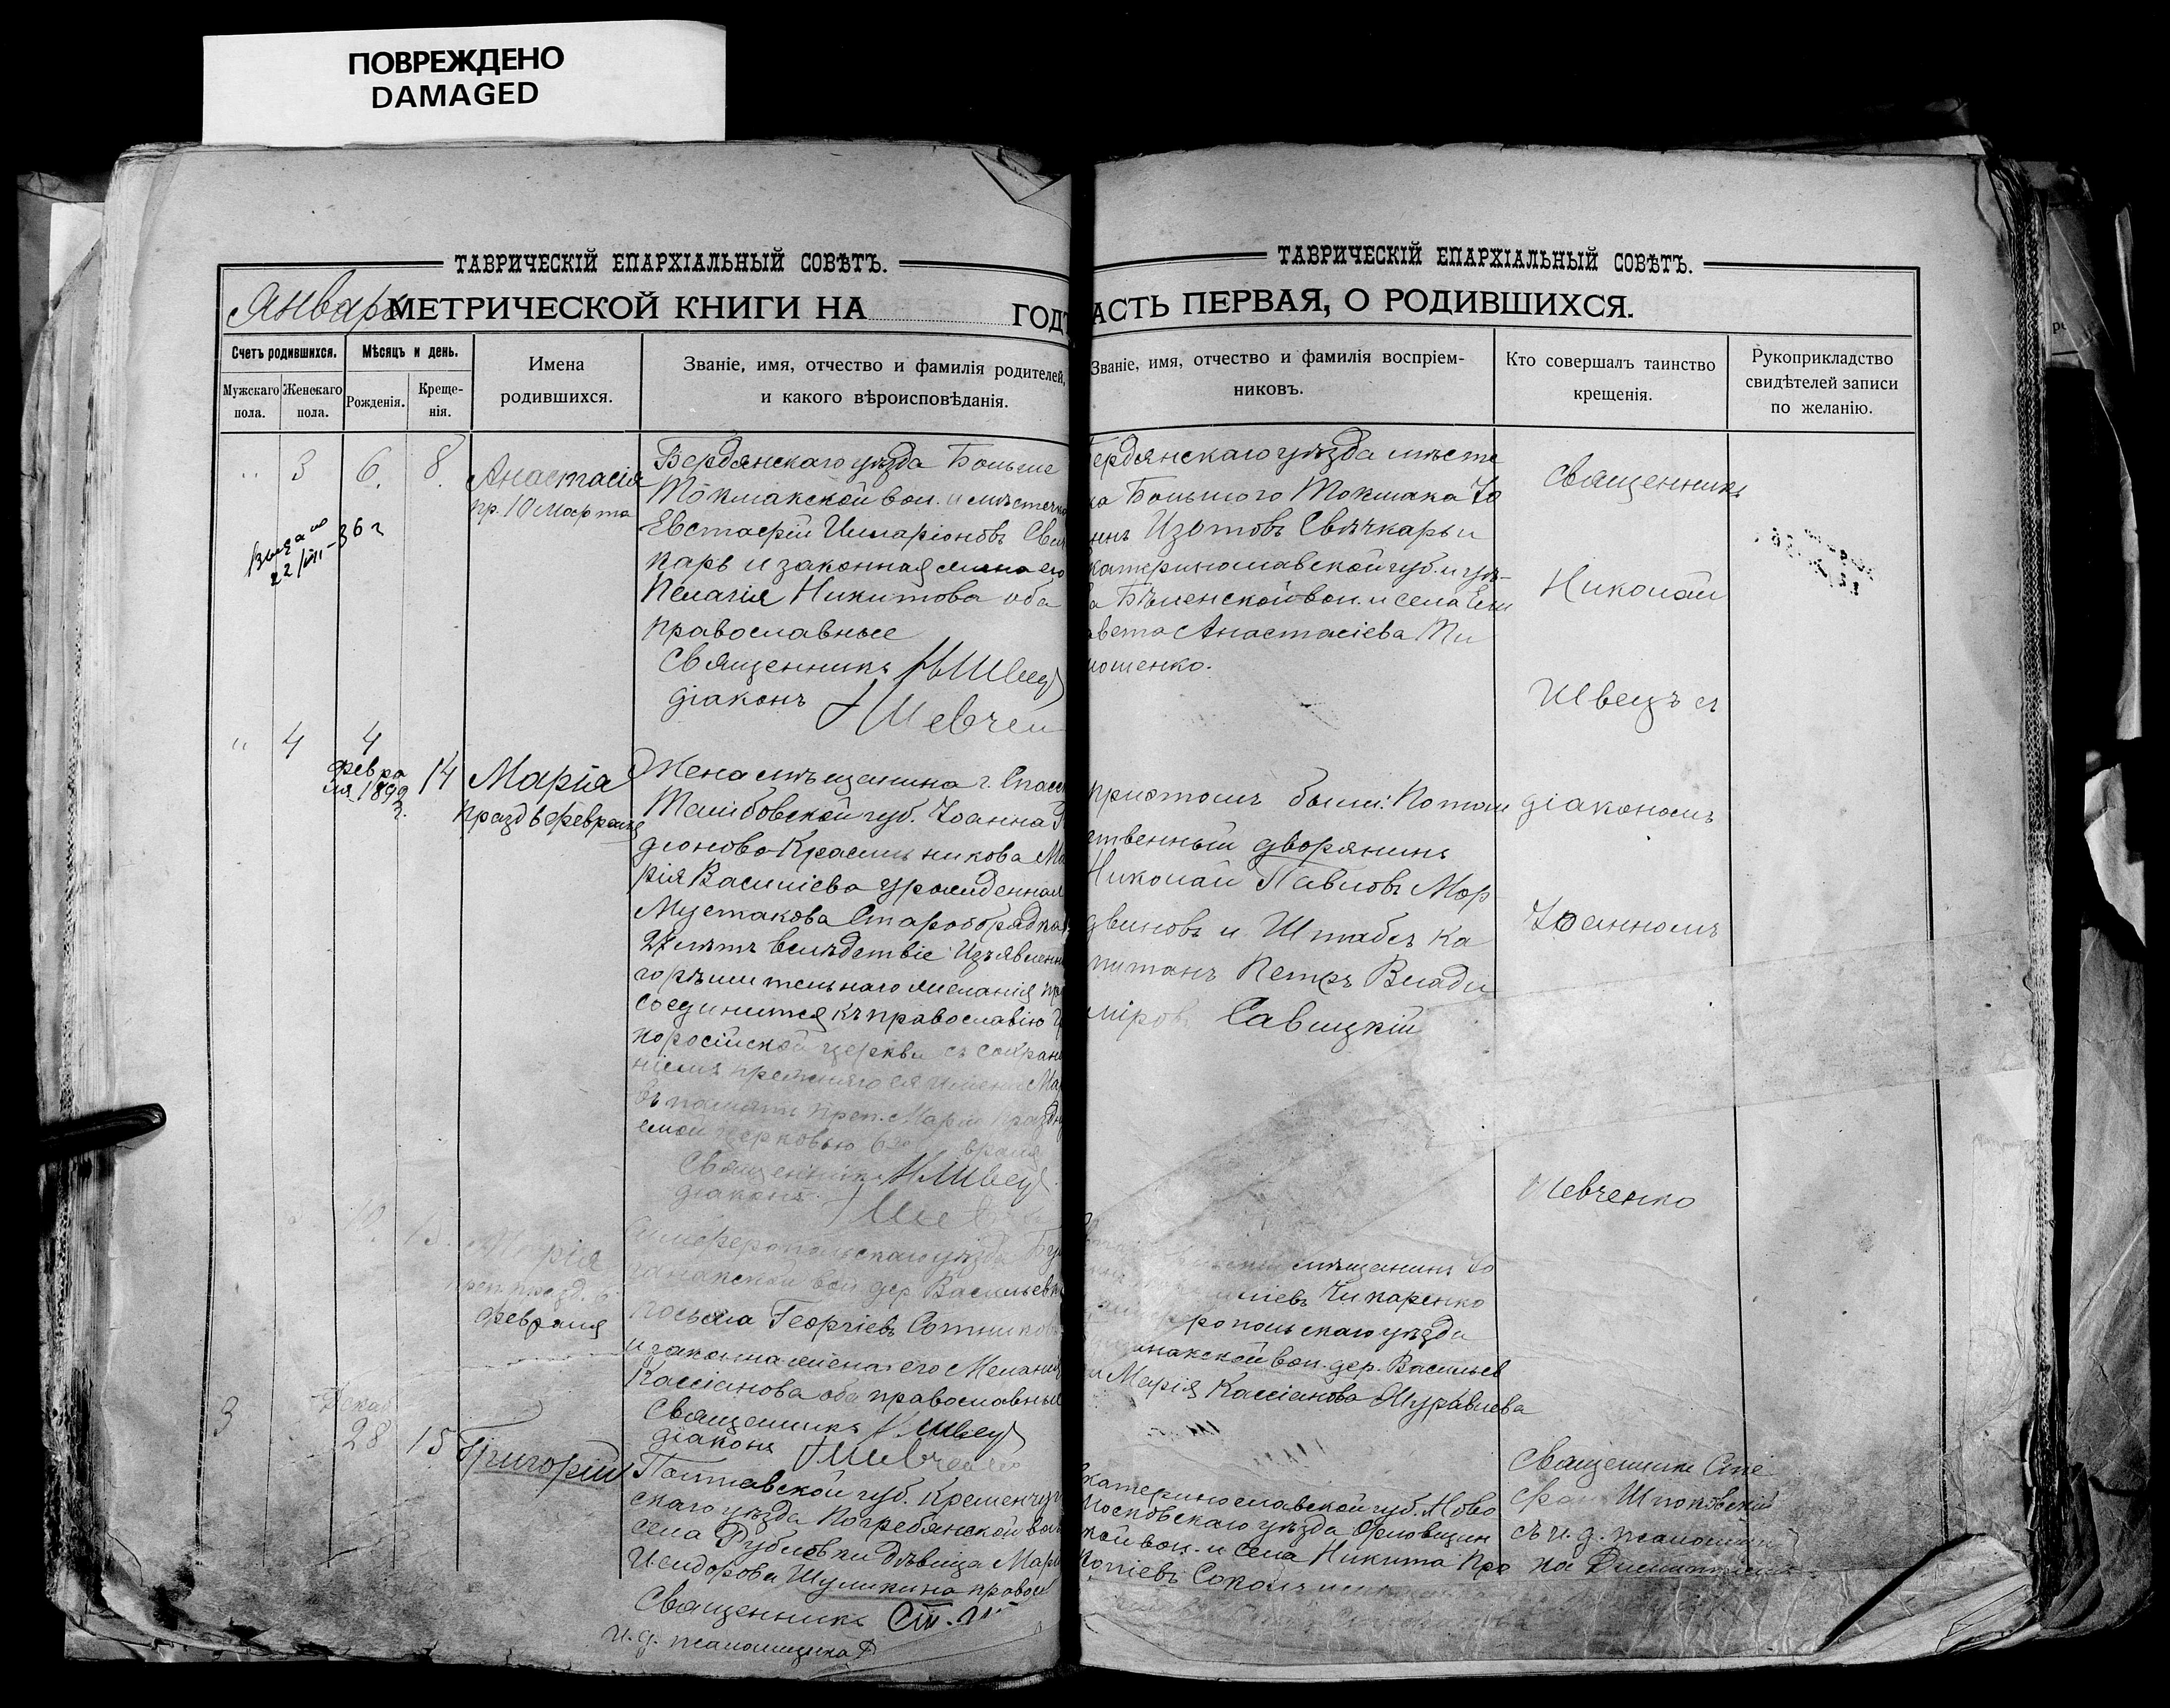 ПОВРЕЖДЕНО
DAMAGED
ТАВРИЧЕСКІЙ ЕПАРХІАЛЬНЫЙ СОВѢТЪ.
Январь МЕТРИЧЕСКОЙ КНИГИ НА ГОДЪ
Счетъ родившихся.
Мѣсяцъ и день.
Имена родившихся.
Званіе, имя, отчество и фамилія родителей,
и какого вѣроисповѣданія.
Мужскаго пола.
Женскаго пола.
Рожденія.
Креще-
нія.
" 3 6. 8.
Анастасія
пр. 10 Марта
22/VIII-36 г
Бердянскаго уѣзда Больше
Токмакской вол. и мѣстечка
Евстафій Иларіоновъ Свѣч
карь и законная жена его
Пелагія Никитова оба
православные
Священникъ Н Швец
діаконъ І Шевчен
" 4 4
февра
ля 1899
14
Марія
празд 6 февраля
Жена мѣщанина г. Спасс
Тамбовской губ. Іоанна
діонова Красильникова Ма
рія Василіева урожденная
Мустакова Старообрядка
27 лѣтъ вслѣдствіе изъявленна
го рѣшительнаго желанія при
соединится къ православію
коросійской церкви съ сохране
ніемъ прежняго ея имени Мар
въ память преп. Маріи праздну
емой церковью 6го враля
Священникъ Н Швец
діаконъ І Шев
10. 13.
Марія
преп. празд. 6
февраля
Симферопольскаго уѣзда Бул
ганакской вол дер. Васильевки
Косьма Георгіевъ Сотников
и законна жена его Меланія
Кассіанова оба православные
Священникъ Н Швец
діаконъ І Шевченко
3 Декаб
28 15
Григорій
Полтавской губ. Кременчуг
скаго уѣзда Погребянской вол
села Рублевки дѣвица Мар
Исидорова Шуликина правосл
Священникъ Ст. Ш
и. д. псаломщика
ТАВРИЧЕСКІЙ ЕПАРХІАЛЬНЫЙ СОВѢТЪ.
АСТЬ ПЕРВАЯ, О РОДИВШИХСЯ.
Званіе, имя, отчество и фамилія воспріем-
никовъ.
Кто совершалъ таинство
крещенія.
Рукоприкладство
свидѣтелей записи
по желанію.
Бердянскаго уѣзда мѣстеч
ка Большого Токмака Іо
ннъ Изотовъ Свѣчкарь и
катеринославской губ. и уѣз-
а Бѣленской вол. и села Ели
авета Анастасіева Ти
мошенко.
Священникъ
Николай
Швецъ съ
діакономъ
Іоанномъ
Шевченко
при томъ были: Потом
ственный дворянинъ
Николай Павловъ Мор
двиновъ и Штабсъ ка
питанъ Петръ Влади
міровъ Савицкій
мѣщанинъ Іо
Чикаренко
ропольскаго уѣзда
анакской вол. дер. Васильев
и Марія Кассіанова Муравлева
Екатеринославской губ. Ново
московскаго уѣзда Орловщин
кой вол. и села Никита Про
копіевъ Сокол
Священникъ Сте
фан Шпоковскій
съ и. д. псаломщи
ка